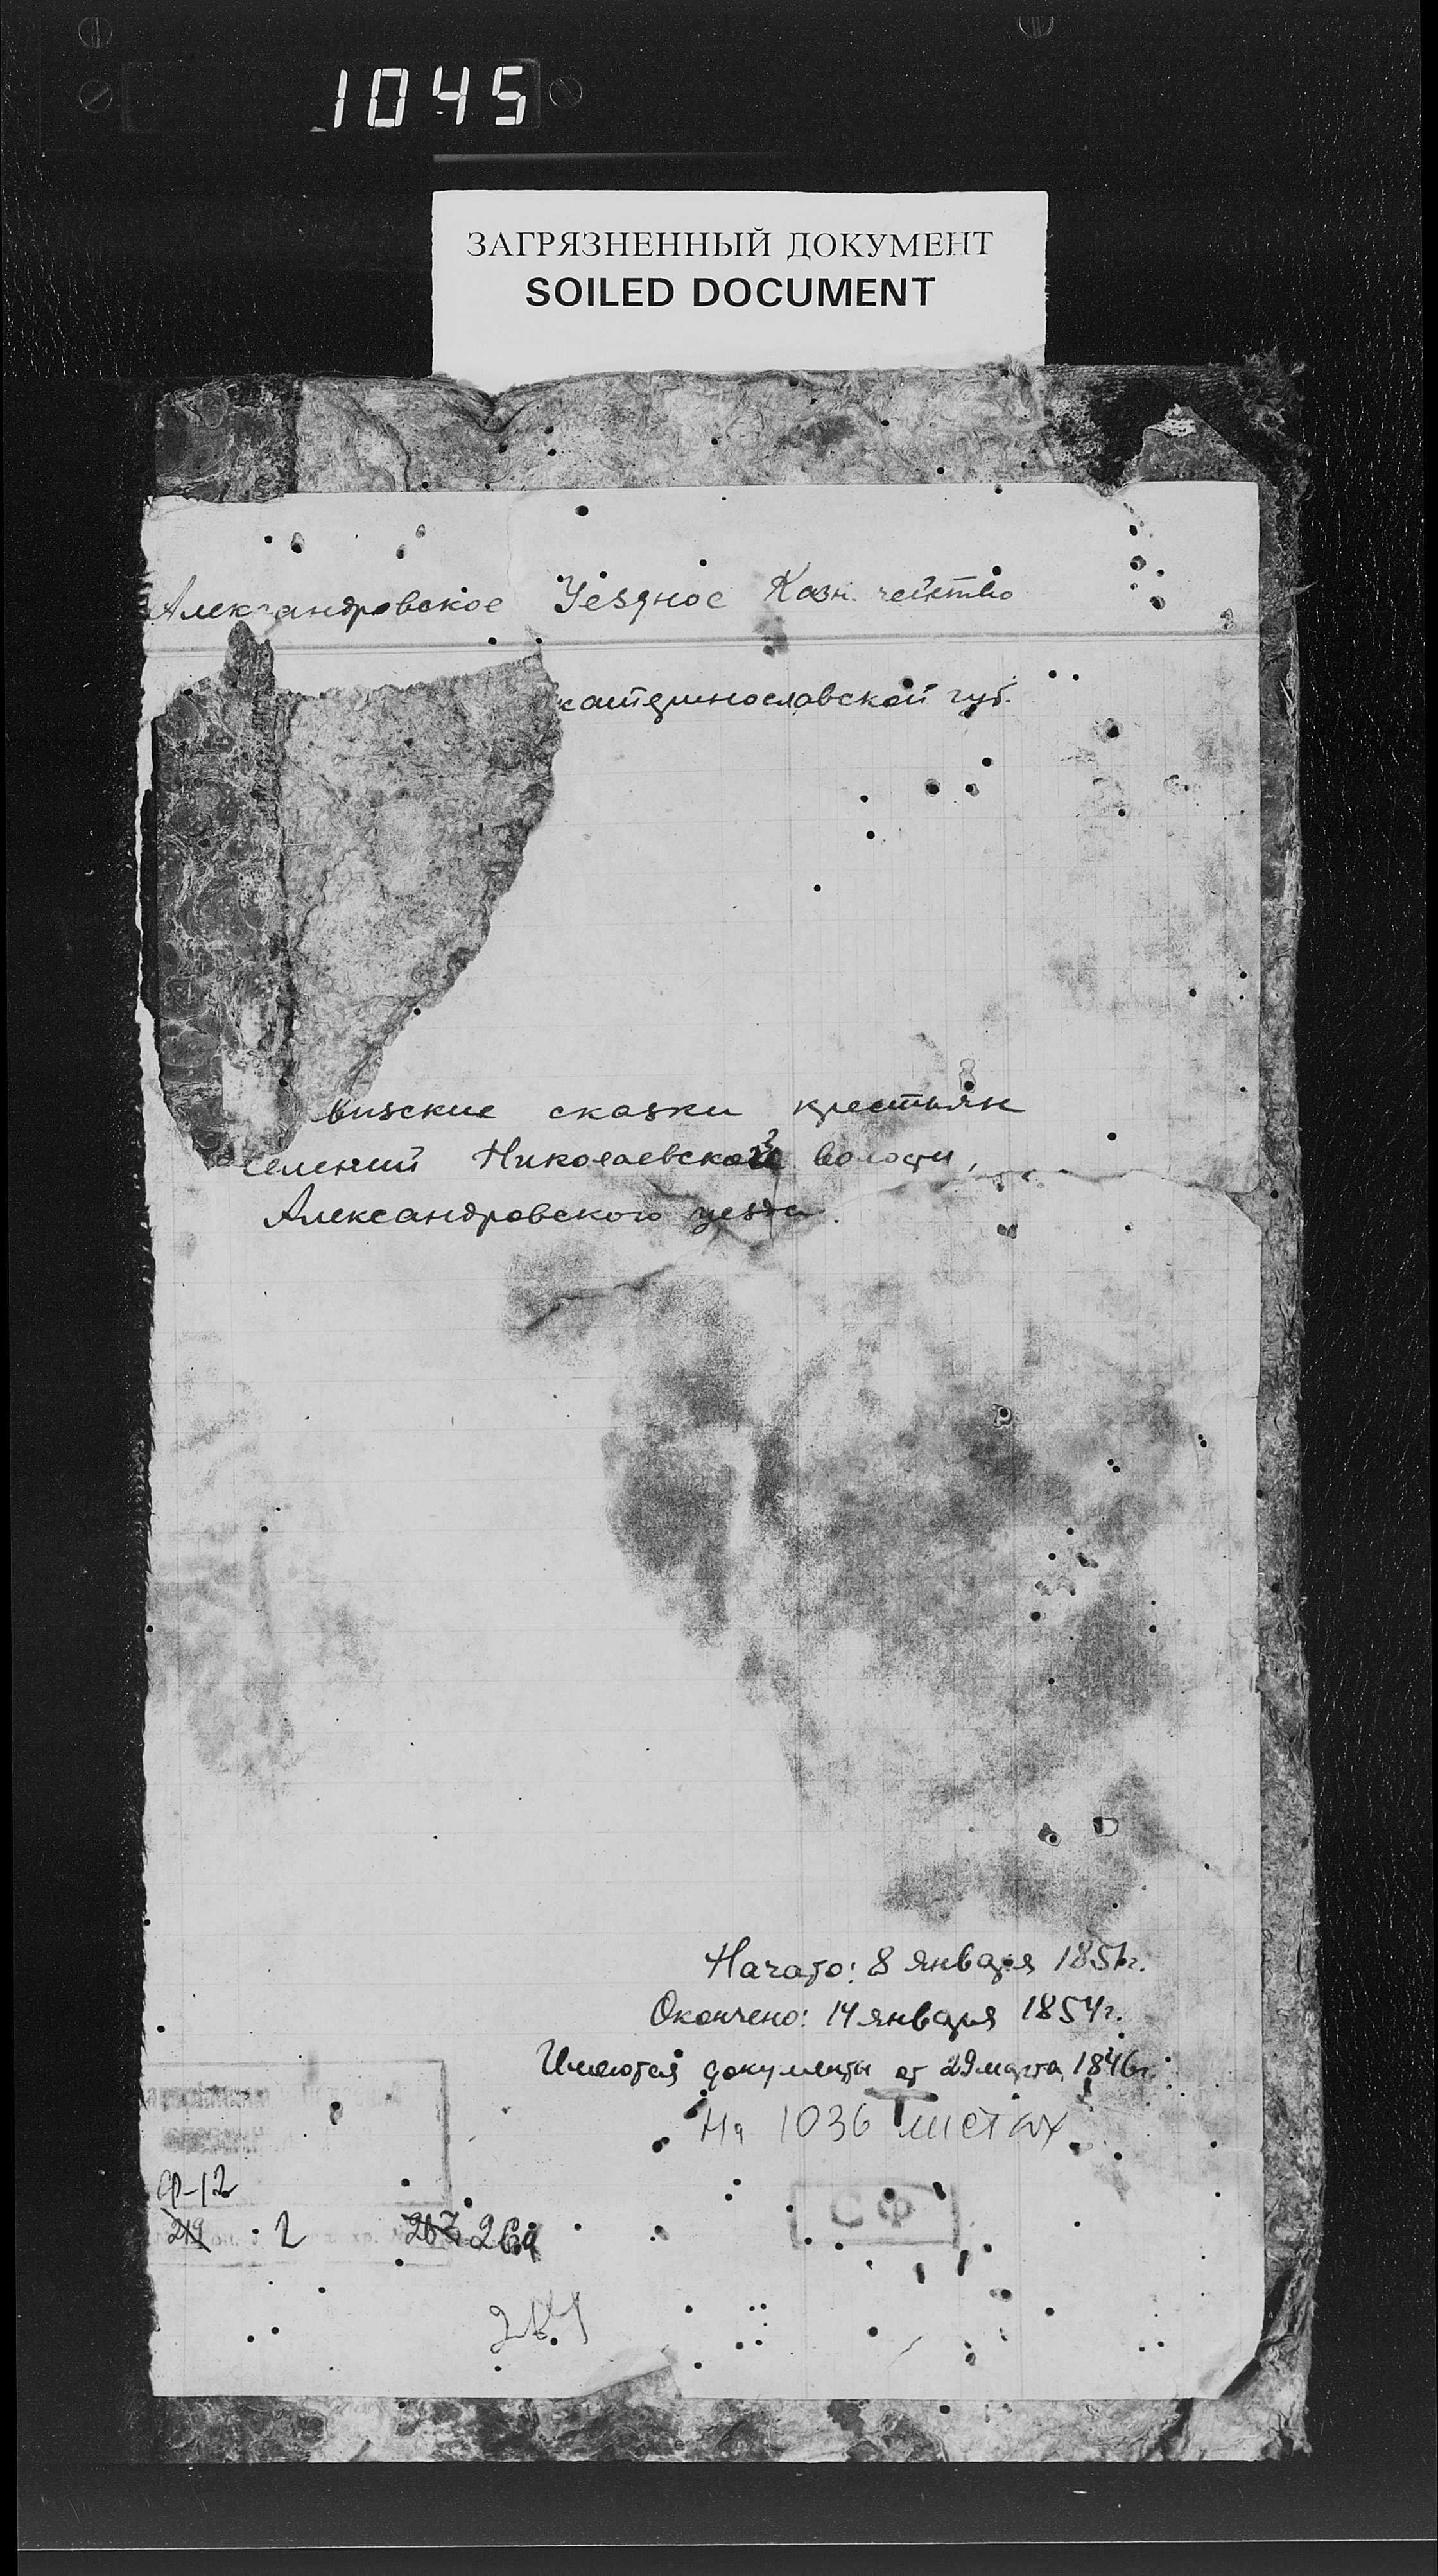 1045
ЗАГРЯЗНЕННЫЙ ДОКУМЕНТ
SOILED DOCUMENT
Александровское Уездное Казн чейство
катеринославской губ.
визские сказки крестьян
селений Николаевской волости,
Александровского уезда.
Начато: 8 января 1851г.
Окончено: 14 января 1854г.
Имеются документы от 29 марта 1846г.
На 1036 листах
Ф-12
СФ
219 2 267 264